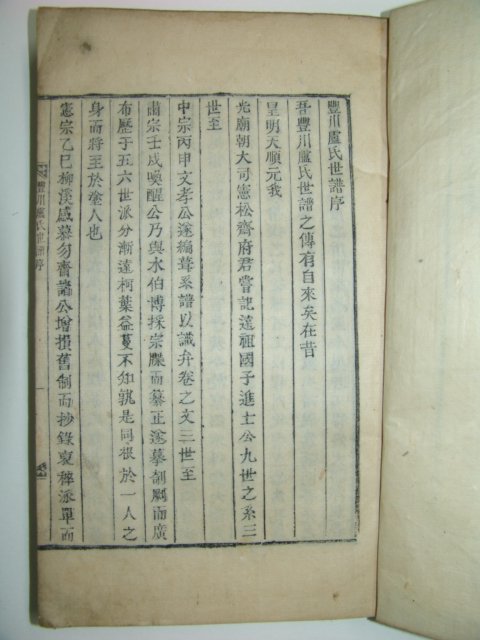 豐川盧氏世譜序
吾豐川盧氏世譜之傳有自來矣在昔
皇明天順元我
光廟朝大司憲松齋府君嘗記遠祖國子進士公九世之系三
世至
中宗丙申文孝公遂編葺系譜以識弁卷之文三世至
肅宗壬戌喚醒公乃與水伯博採宗牒而纂正遂摹剞劂而廣
布歷于五六世派分漸遠柯葉益蔓不知孰是同根於一人之
身而將至於塗人也
憲宗乙巳柳溪感慕勿齋諸公增損舊制而抄錄裒稡派單而
豐川盧氏世譜序
一